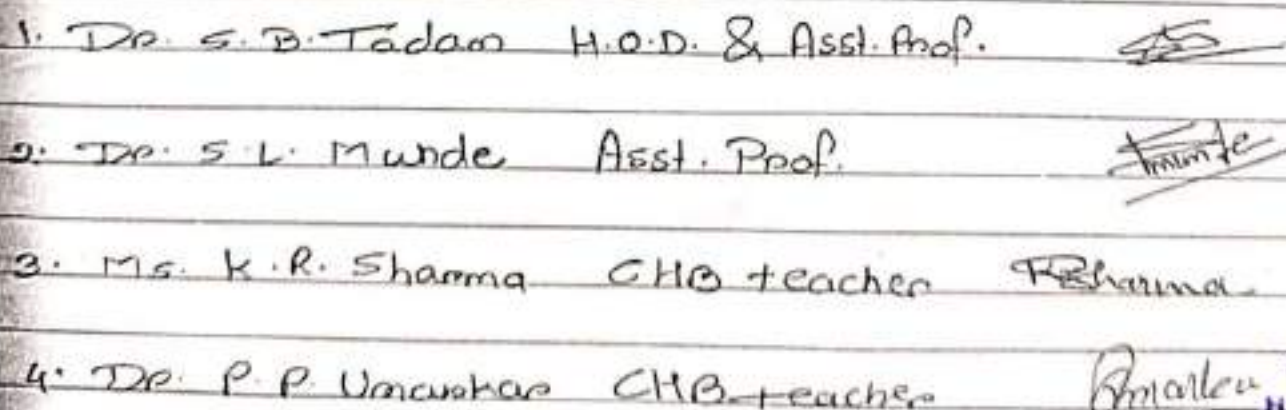 1. Dr. S. B. Tadam H.O.D. & Asst. Prof.
2. Dr. S. L. Munde Asst. Prof.
3. Ms. K. R. Sharma CHB teacher RSharma
4. Dr. P. P. CHB teacher